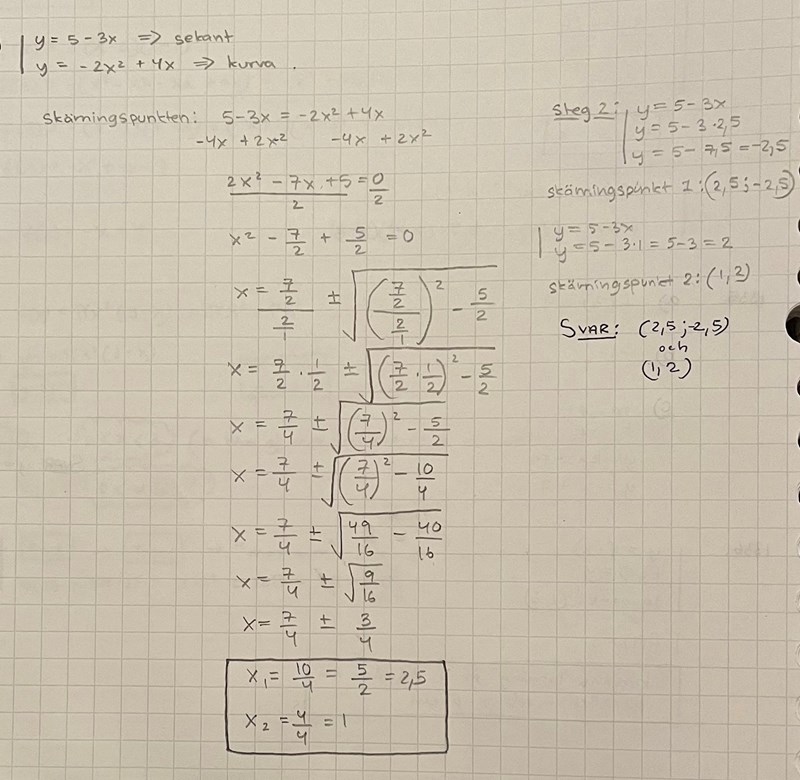 y = 5 - 3x => sekant
y = -2x² + 4x => kurva .
skärningspunkten: 5-3x = -2x² + 4x
-4x + 2x² -4x + 2x²
2x² - 7x + 5 = 0
2 2
x² - 7/2 + 5/2 = 0
x = (7/2)/(2/1) ± √(((7/2)/(2/1))² - 5/2)
x = 7/2 · 1/2 ± √((7/2 · 1/2)² - 5/2)
x = 7/4 ± √((7/4)² - 5/2)
x = 7/4 ± √((7/4)² - 10/4)
x = 7/4 ± √(49/16 - 40/16)
x = 7/4 ± √(9/16)
x = 7/4 ± 3/4
x₁ = 10/4 = 5/2 = 2,5
x₂ = 4/4 = 1
Steg 2: y = 5 - 3x
y = 5 - 3·2,5
y = 5 - 7,5 = -2,5
skärningspunkt 1: (2,5 ; -2,5)
y = 5-3x
y = 5 - 3·1 = 5-3 = 2
skärningspunkt 2: (1, 2)
SVAR: (2,5 ; -2,5)
och
(1, 2)